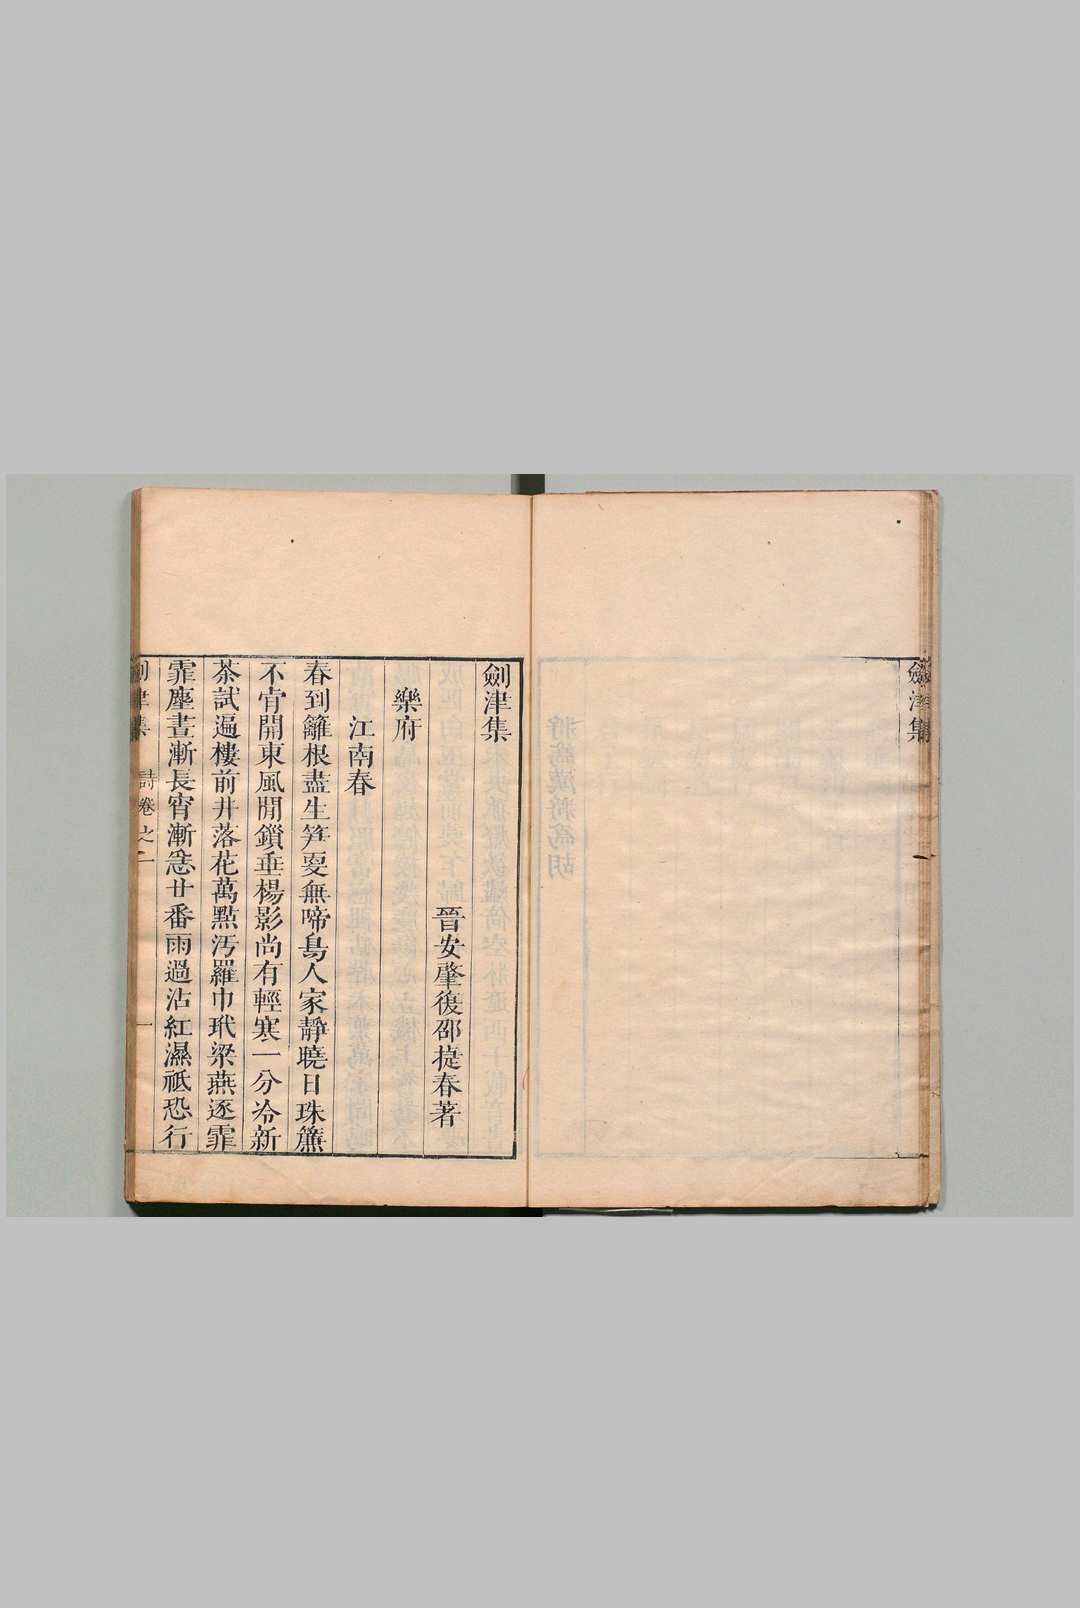 劍津集
劍津集
晉安肇復邵捷春著
樂府
江南春
春到籬根盡生笋叓無啼鳥人家靜曉日珠簾
不肯開東風閒鎖垂楊影尚有輕寒一分冷新
茶試遍樓前井落花萬點汚羅巾玳梁燕逐霏
霏塵晝漸長宵漸㤪廿番雨過沾紅濕祗恐行
劍津集 詩卷之二 一